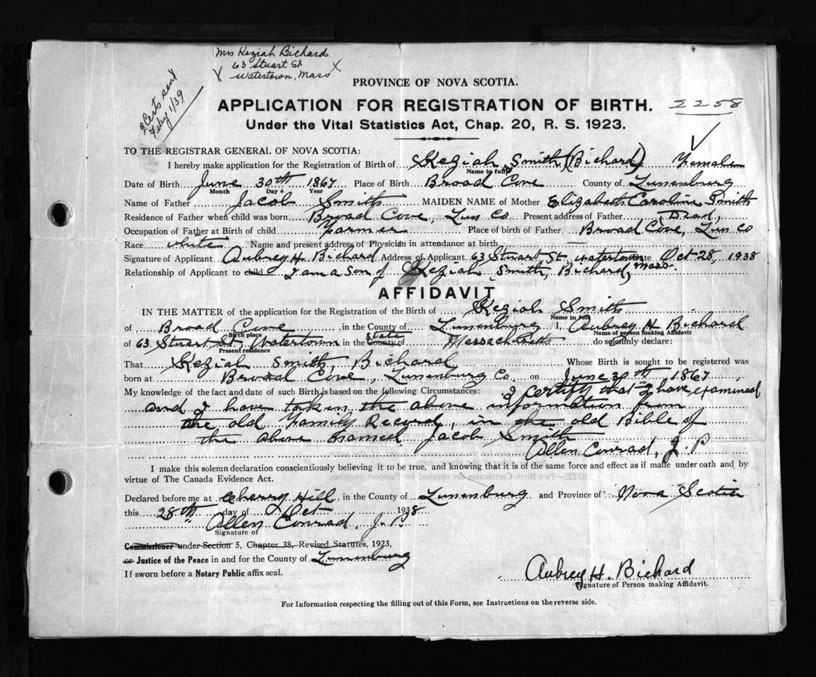 Mrs Keziah Bichard
63 Stuart St
Watertown, Mass
2 Certs sent
Feby 1/39
PROVINCE OF NOVA SCOTIA.
APPLICATION FOR REGISTRATION OF BIRTH. 2258
Under the Vital Statistics Act, Chap. 20, R. S. 1923.
TO THE REGISTRAR GENERAL OF NOVA SCOTIA:
I hereby make application for the Registration of Birth of Keziah Smith (Bichard) Female
Name in full
Date of Birth June 30th 1867 Place of Birth Broad Cove County of Lunenburg
Month Day Year
Name of Father Jacob Smith MAIDEN NAME of Mother Elizabeth Caroline Smith
Residence of Father when child was born Broad Cove, Lun Co. Present address of Father Dead,
Occupation of Father at Birth of child Farmer Place of birth of Father Broad Cove, Lun Co
Race White Name and present address of Physician in attendance at birth
Signature of Applicant Aubrey H. Bichard Address of Applicant 63 Stuart St. Watertown Mass. Date Oct 28, 1938
Relationship of Applicant to child I am a Son of Keziah Smith, Bichard,
AFFIDAVIT
IN THE MATTER of the application for the Registration of the Birth of Keziah Smith
Name in full
of Broad Cove in the County of Lunenburg I, Aubrey H Bichard
Birth place Name of person making Affidavit
of 63 Stuart St, Watertown in the County of State Massachusetts do solemnly declare:
Present residence
That Keziah Smith, Bichard Whose Birth is sought to be registered was
born at Broad Cove, Lunenburg Co. on June 30th 1867
My knowledge of the fact and date of such Birth is based on the following Circumstances: I certify that I have examined
and I have taken the above information from
the old Family Record, in the old Bible of
the above named Jacob Smith
Allen Conrad, J. P.
I make this solemn declaration conscientiously believing it to be true, and knowing that it is of the same force and effect as if made under oath and by
virtue of The Canada Evidence Act.
Declared before me at Cherry Hill, in the County of Lunenburg and Province of Nova Scotia
this 28th day of Oct 1938
Allen Conrad, J.P.
Signature of
Commissioner under Section 5, Chapter 38, Revised Statutes, 1923,
or Justice of the Peace in and for the County of Lunenburg
If sworn before a Notary Public affix seal.
Aubrey H. Bichard
Signature of Person making Affidavit.
For Information respecting the filling out of this Form, see Instructions on the reverse side.